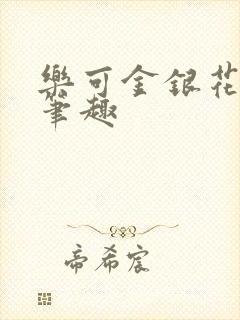 樂可金銀花
筆趣
帝希宸